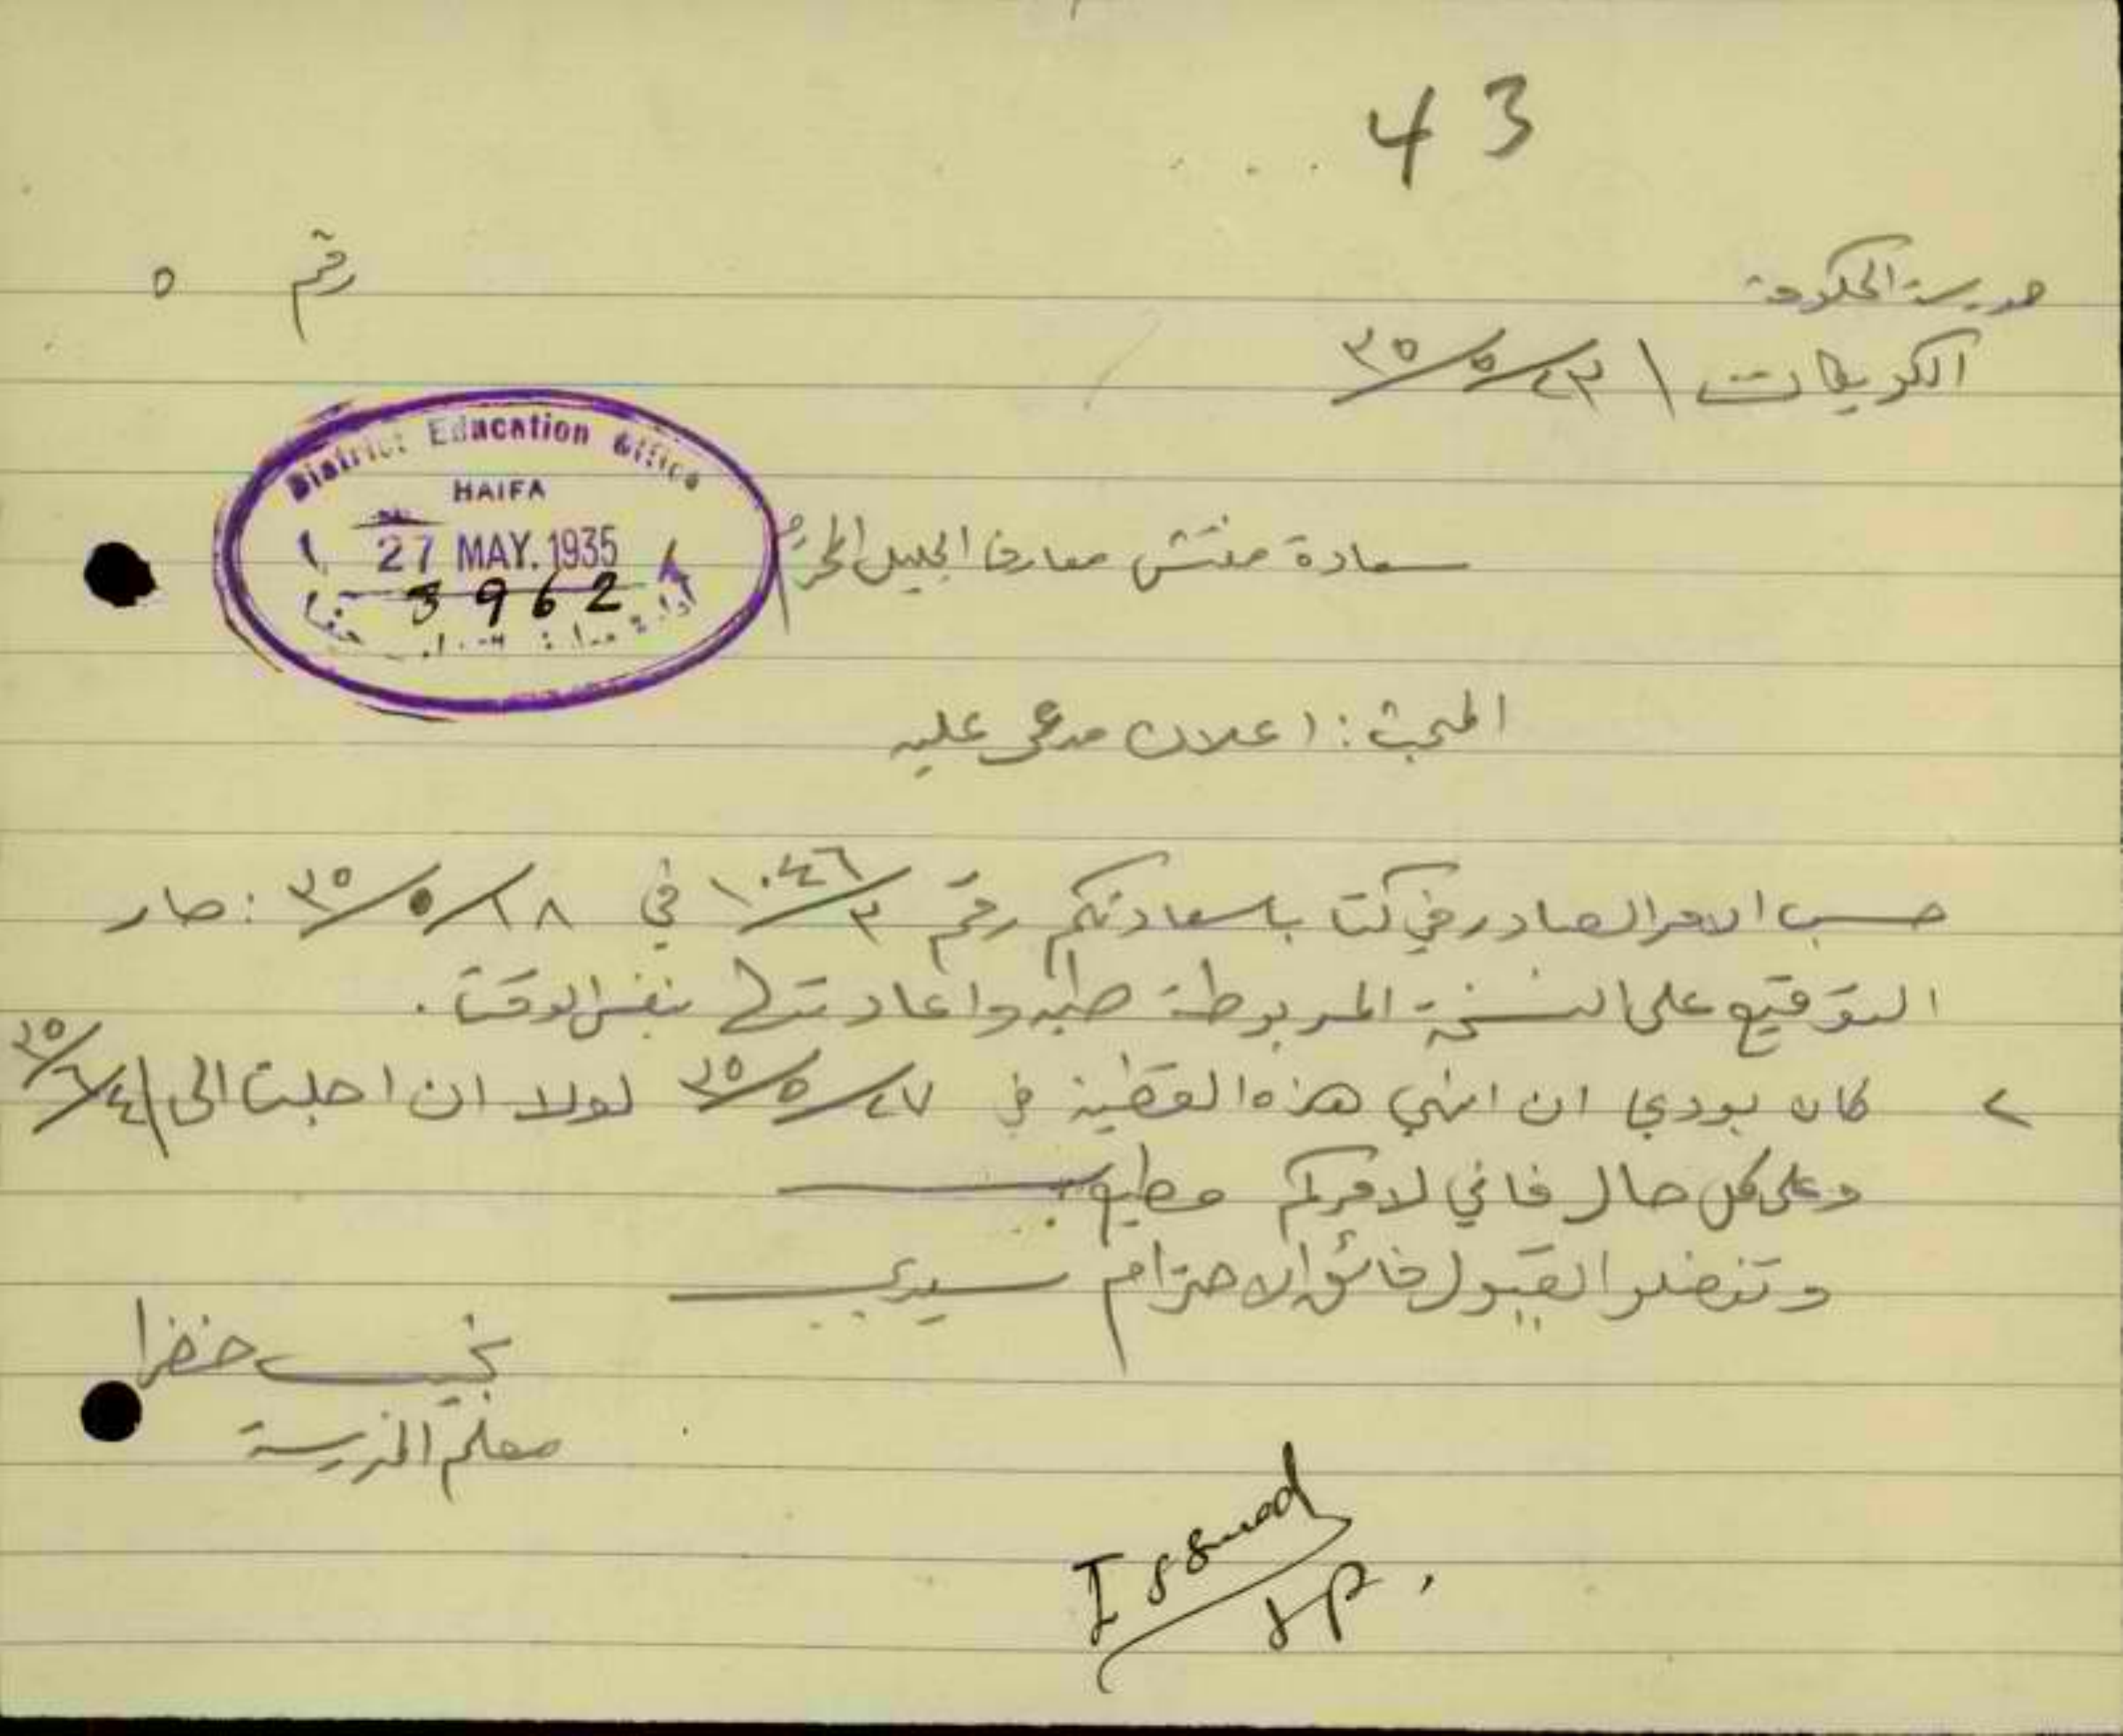 43
مدرسة الحكومة
رقم ٥
الكويكات \ ٢٣/٥/٣٥
District Education Office
HAIFA
27 MAY. 1935
3962
سعادة مفتش معارف الجليل المحترم
المبحث: اعلان مدعى عليه
حسب الامر الصادر في كتاب سعادتكم رقم ١٠٤٦/٣ في ١٨/٥/٣٥ : صار
التوقيع على النسخة المربوطة طيه واعادتها بنفس الوقت.
٢ كان بودي ان انهي هذه القضية في ٢٧/٥/٣٥ لولا ان اجلت الى ٢٤/٦/٣٥
وعلى كل حال فاني لامركم مطيع
وتفضلوا بقبول فائق الاحترام سيدي
نجيب خضرا
معلم المدرسة
Issued